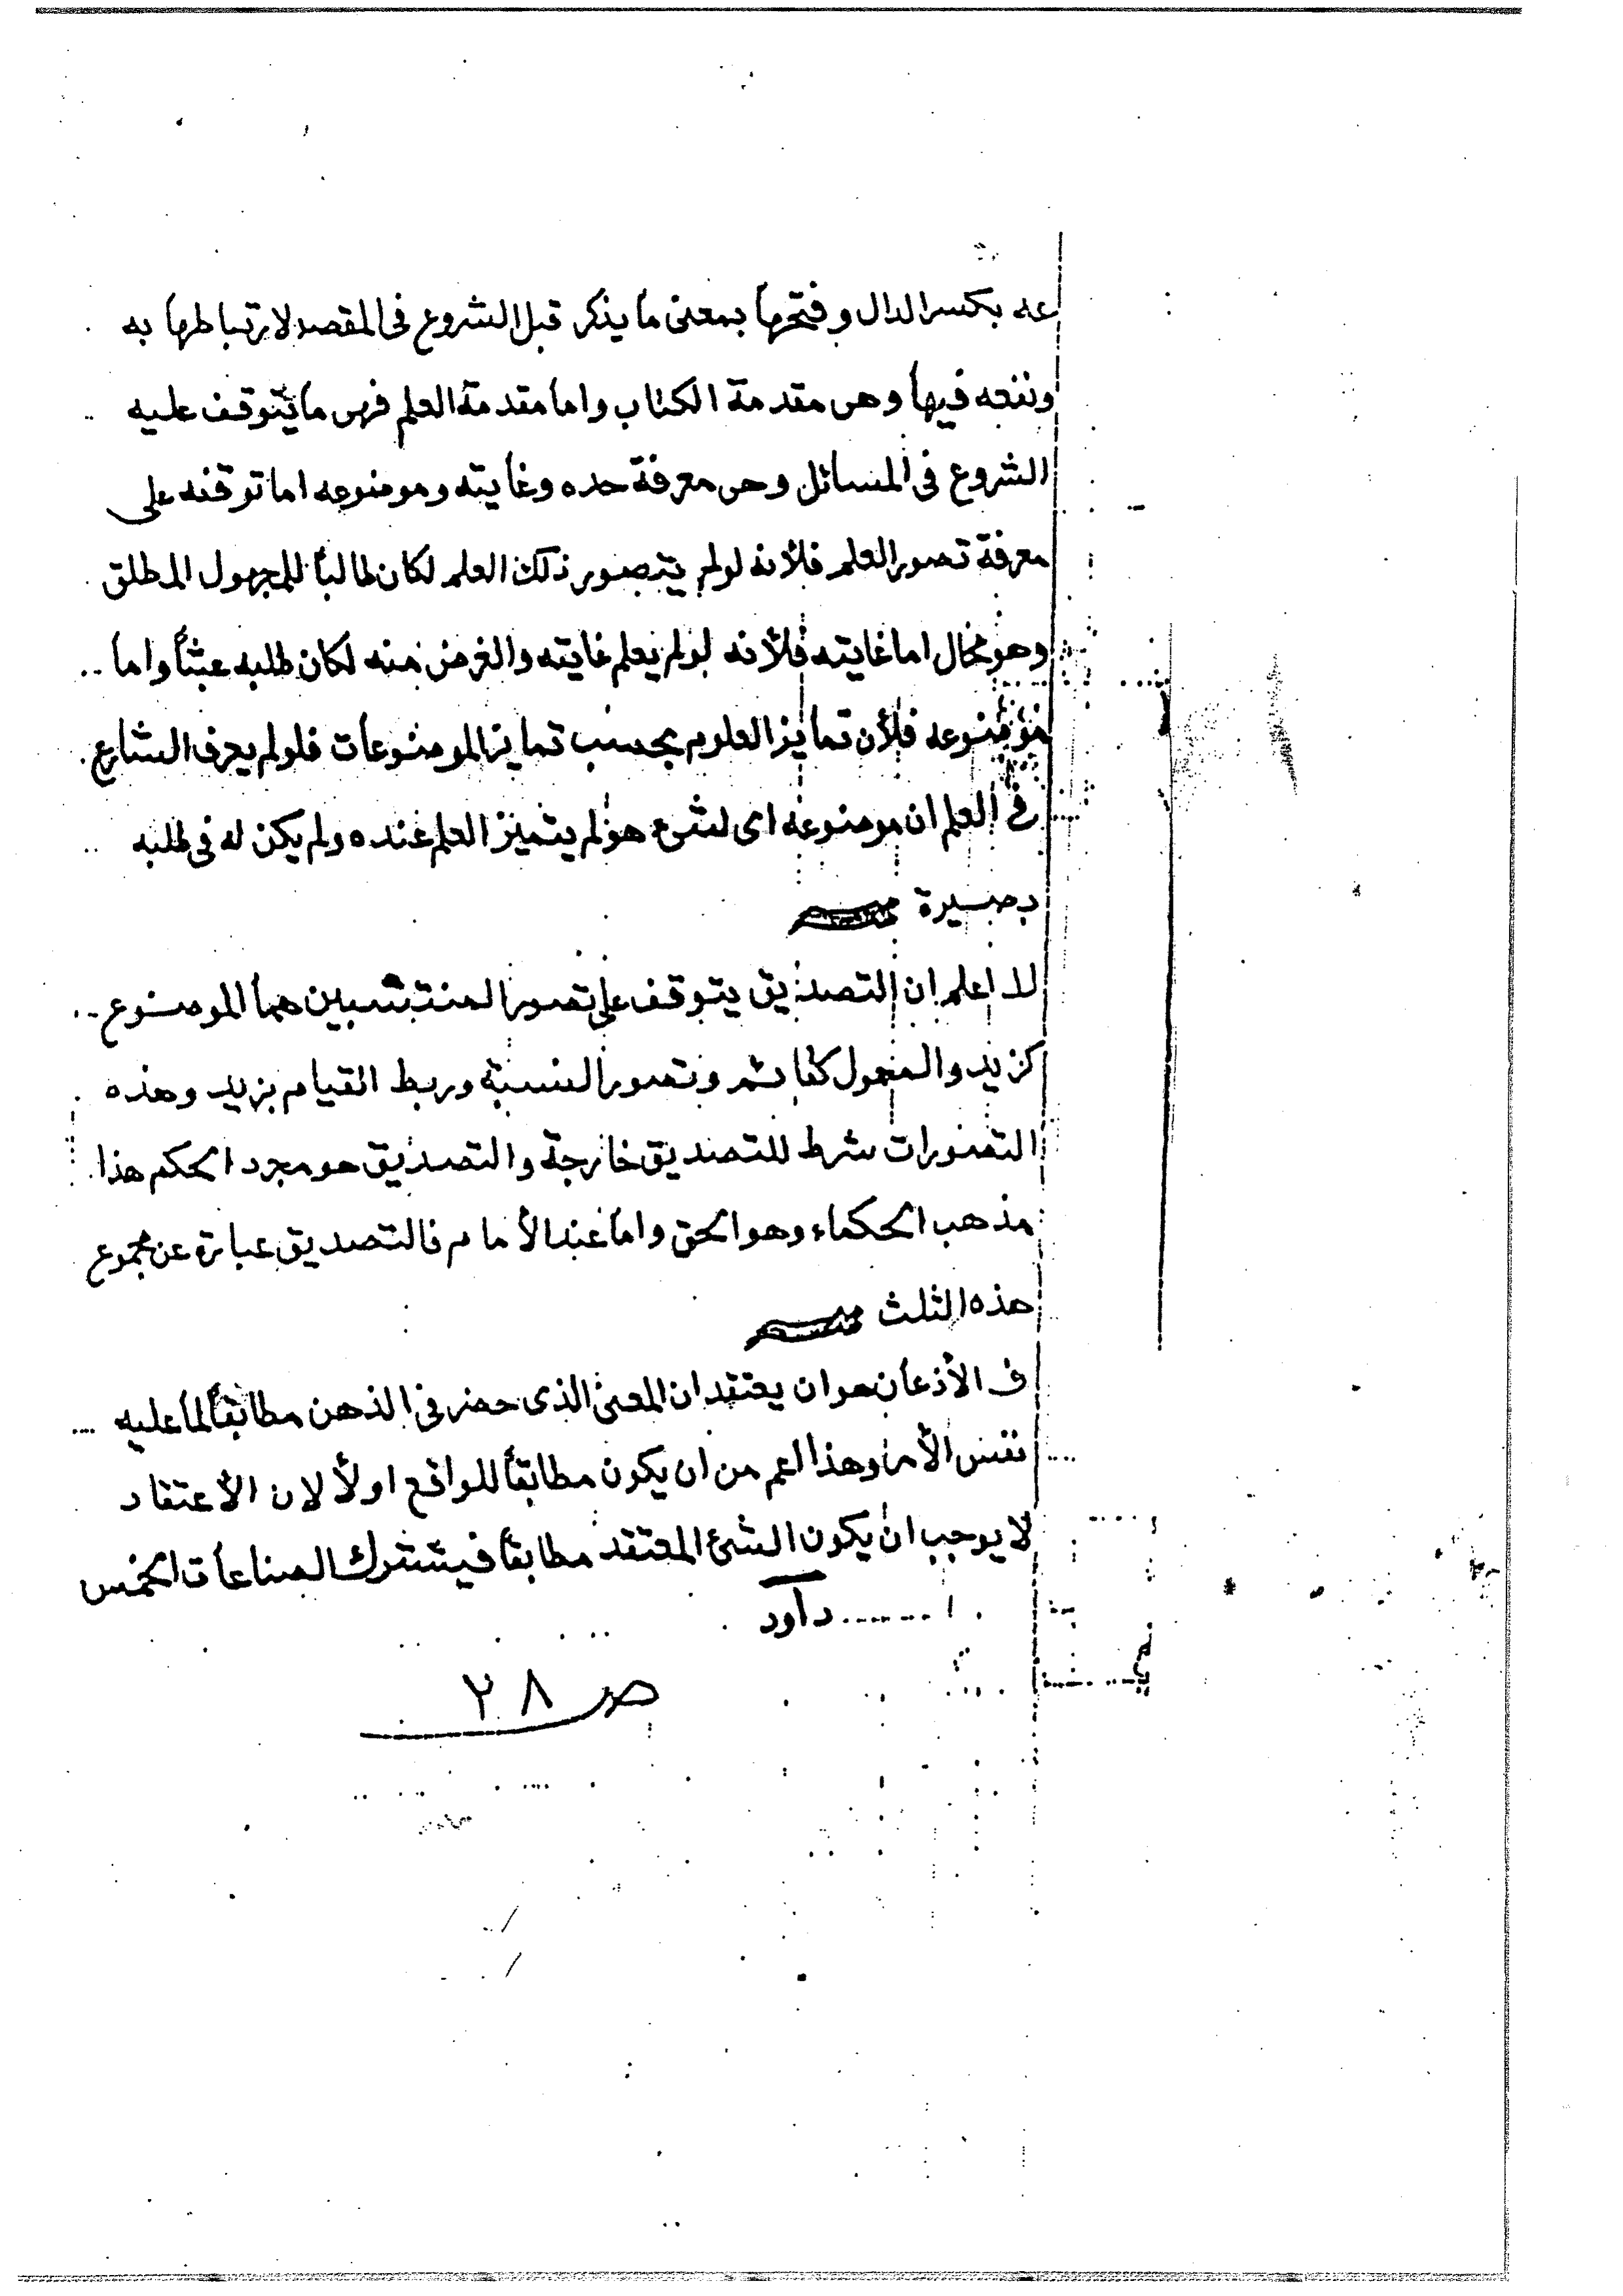 عه بكسر الدال وفتحها بمعنى ما يذكر قبل الشروع فى المقصد لارتباطها به
ونفعه فيها وهى مقدمة الكتاب واما مقدمة العلم فهى ما يتوقف عليه
الشروع فى المسائل وهى معرفة حده وغايته وموضوعه اما توقفه على
معرفة تصور العلم فلأنه لو لم يتصور ذلك العلم لكان طالباً للمجهول المطلق
وهو محال اما غايته فلأنه لو لم يعلم غايته والغرض منه لكان طلبه عبثاً واما
موضوعه فلأن تمايز العلوم بحسب تمايز الموضوعات فلو لم يعرف الشارع
فى العلم ان موضوعه اى لشىء هو لم يتميز العلم عنده ولم يكن له فى طلبه
بصيرة
للا اعلم ان التصديق يتوقف على تصور المنتسبين هما الموضوع
كزيد والمحمول كقائم وتصور النسبة وربط القيام بزيد وهذه
التصورات شرط للتصديق خارجة والتصديق هو مجرد الحكم هذا
مذهب الحكماء وهو الحق واما عند الأمام فالتصديق عبارة عن مجموع
هذه الثلث
ف الأذعان هو ان يعتقد ان المعنى الذى حضر فى الذهن مطابقاً لما عليه
نفس الأمر وهذا اعم من ان يكون مطابقاً للواقع اولا لان الأعتقاد
لا يوجب ان يكون الشئ المعتقد مطابقاً فيشترك الصناعات الخمس
داود
ص ٢٨